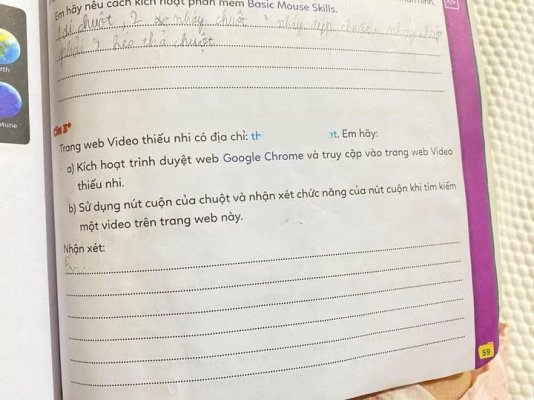 Em hãy nêu cách kích hoạt phần mềm Basic Mouse Skills.
chuột, 2 nháy chuột nháy
phải 5 kéo thả chuột
rth
ptune
Câu 3*
Trang web Video thiếu nhi có địa chỉ: th et. Em hãy:
a) Kích hoạt trình duyệt web Google Chrome và truy cập vào trang web Video
thiếu nhi.
b) Sử dụng nút cuộn của chuột và nhận xét chức năng của nút cuộn khi tìm kiếm
một video trên trang web này.
Nhận xét:
59